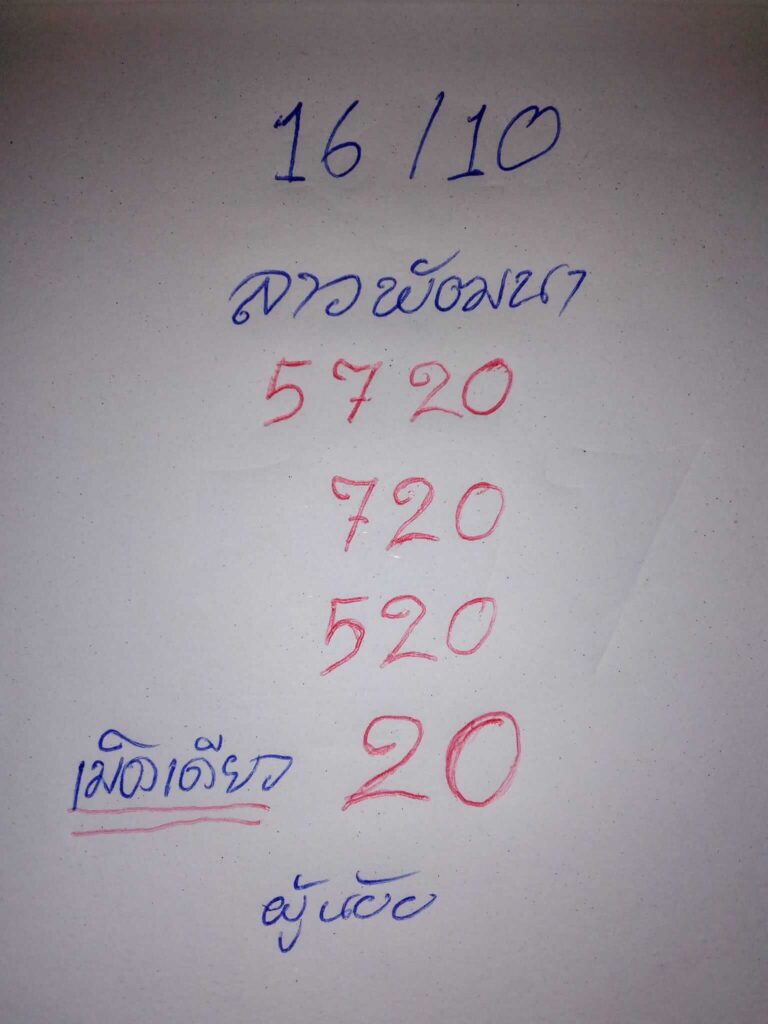 16/10
ลาวพัฒนา
5720
720
520
เม็ดเดียว 20
ผู้น้อย